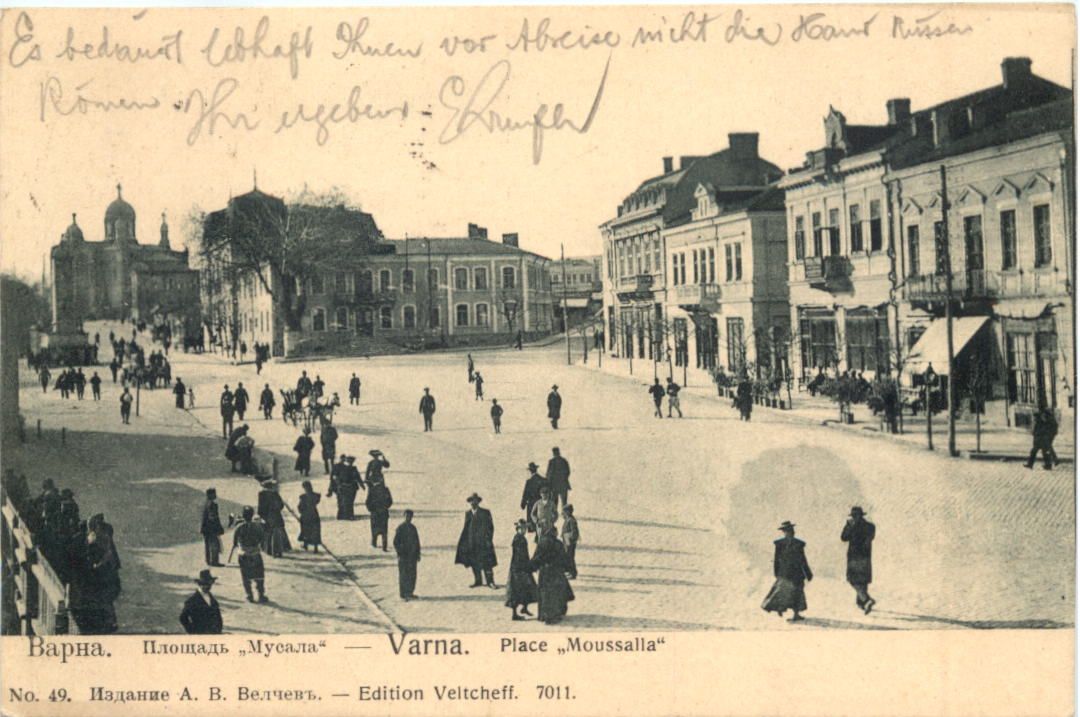 Es bedauert lebhaft Ihnen vor Abreise nicht die Hand küssen
Können Ihr ergebener
Варна. Площадь „Мусала“ — Varna. Place „Moussalla“
No. 49. Издание А. В. Велчевъ. — Edition Veltcheff. 7011.